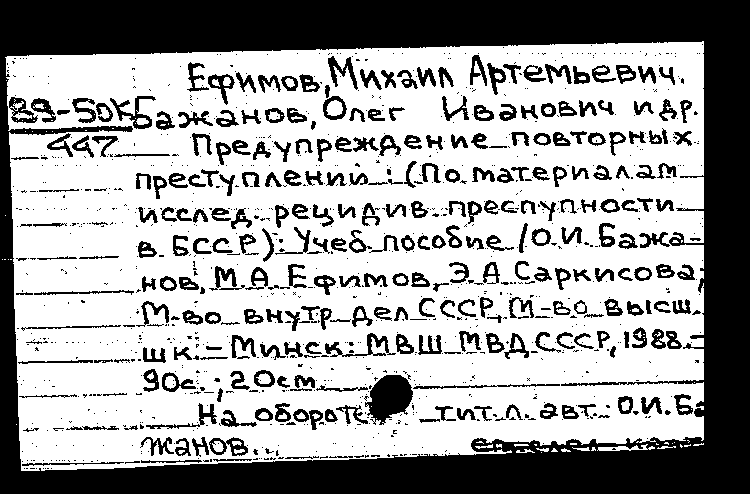 Ефимов, Михаил Артемьевич.
89-50К Бажанов, Олег Иванович и др.
447 Предупреждение повторных
преступлений : (По материалам
исслед. рецидив. преступности
в БССР) : Учеб. пособие / О.И. Бажа-
нов, М.А. Ефимов, Э.А. Саркисова;
М-во внутр дел СССР, М-во высш.
шк. – Минск: МВШ МВД СССР, 1988. –
90с. ; 20см.
На обороте тит.л. авт.: О.И. Ба
жанов...